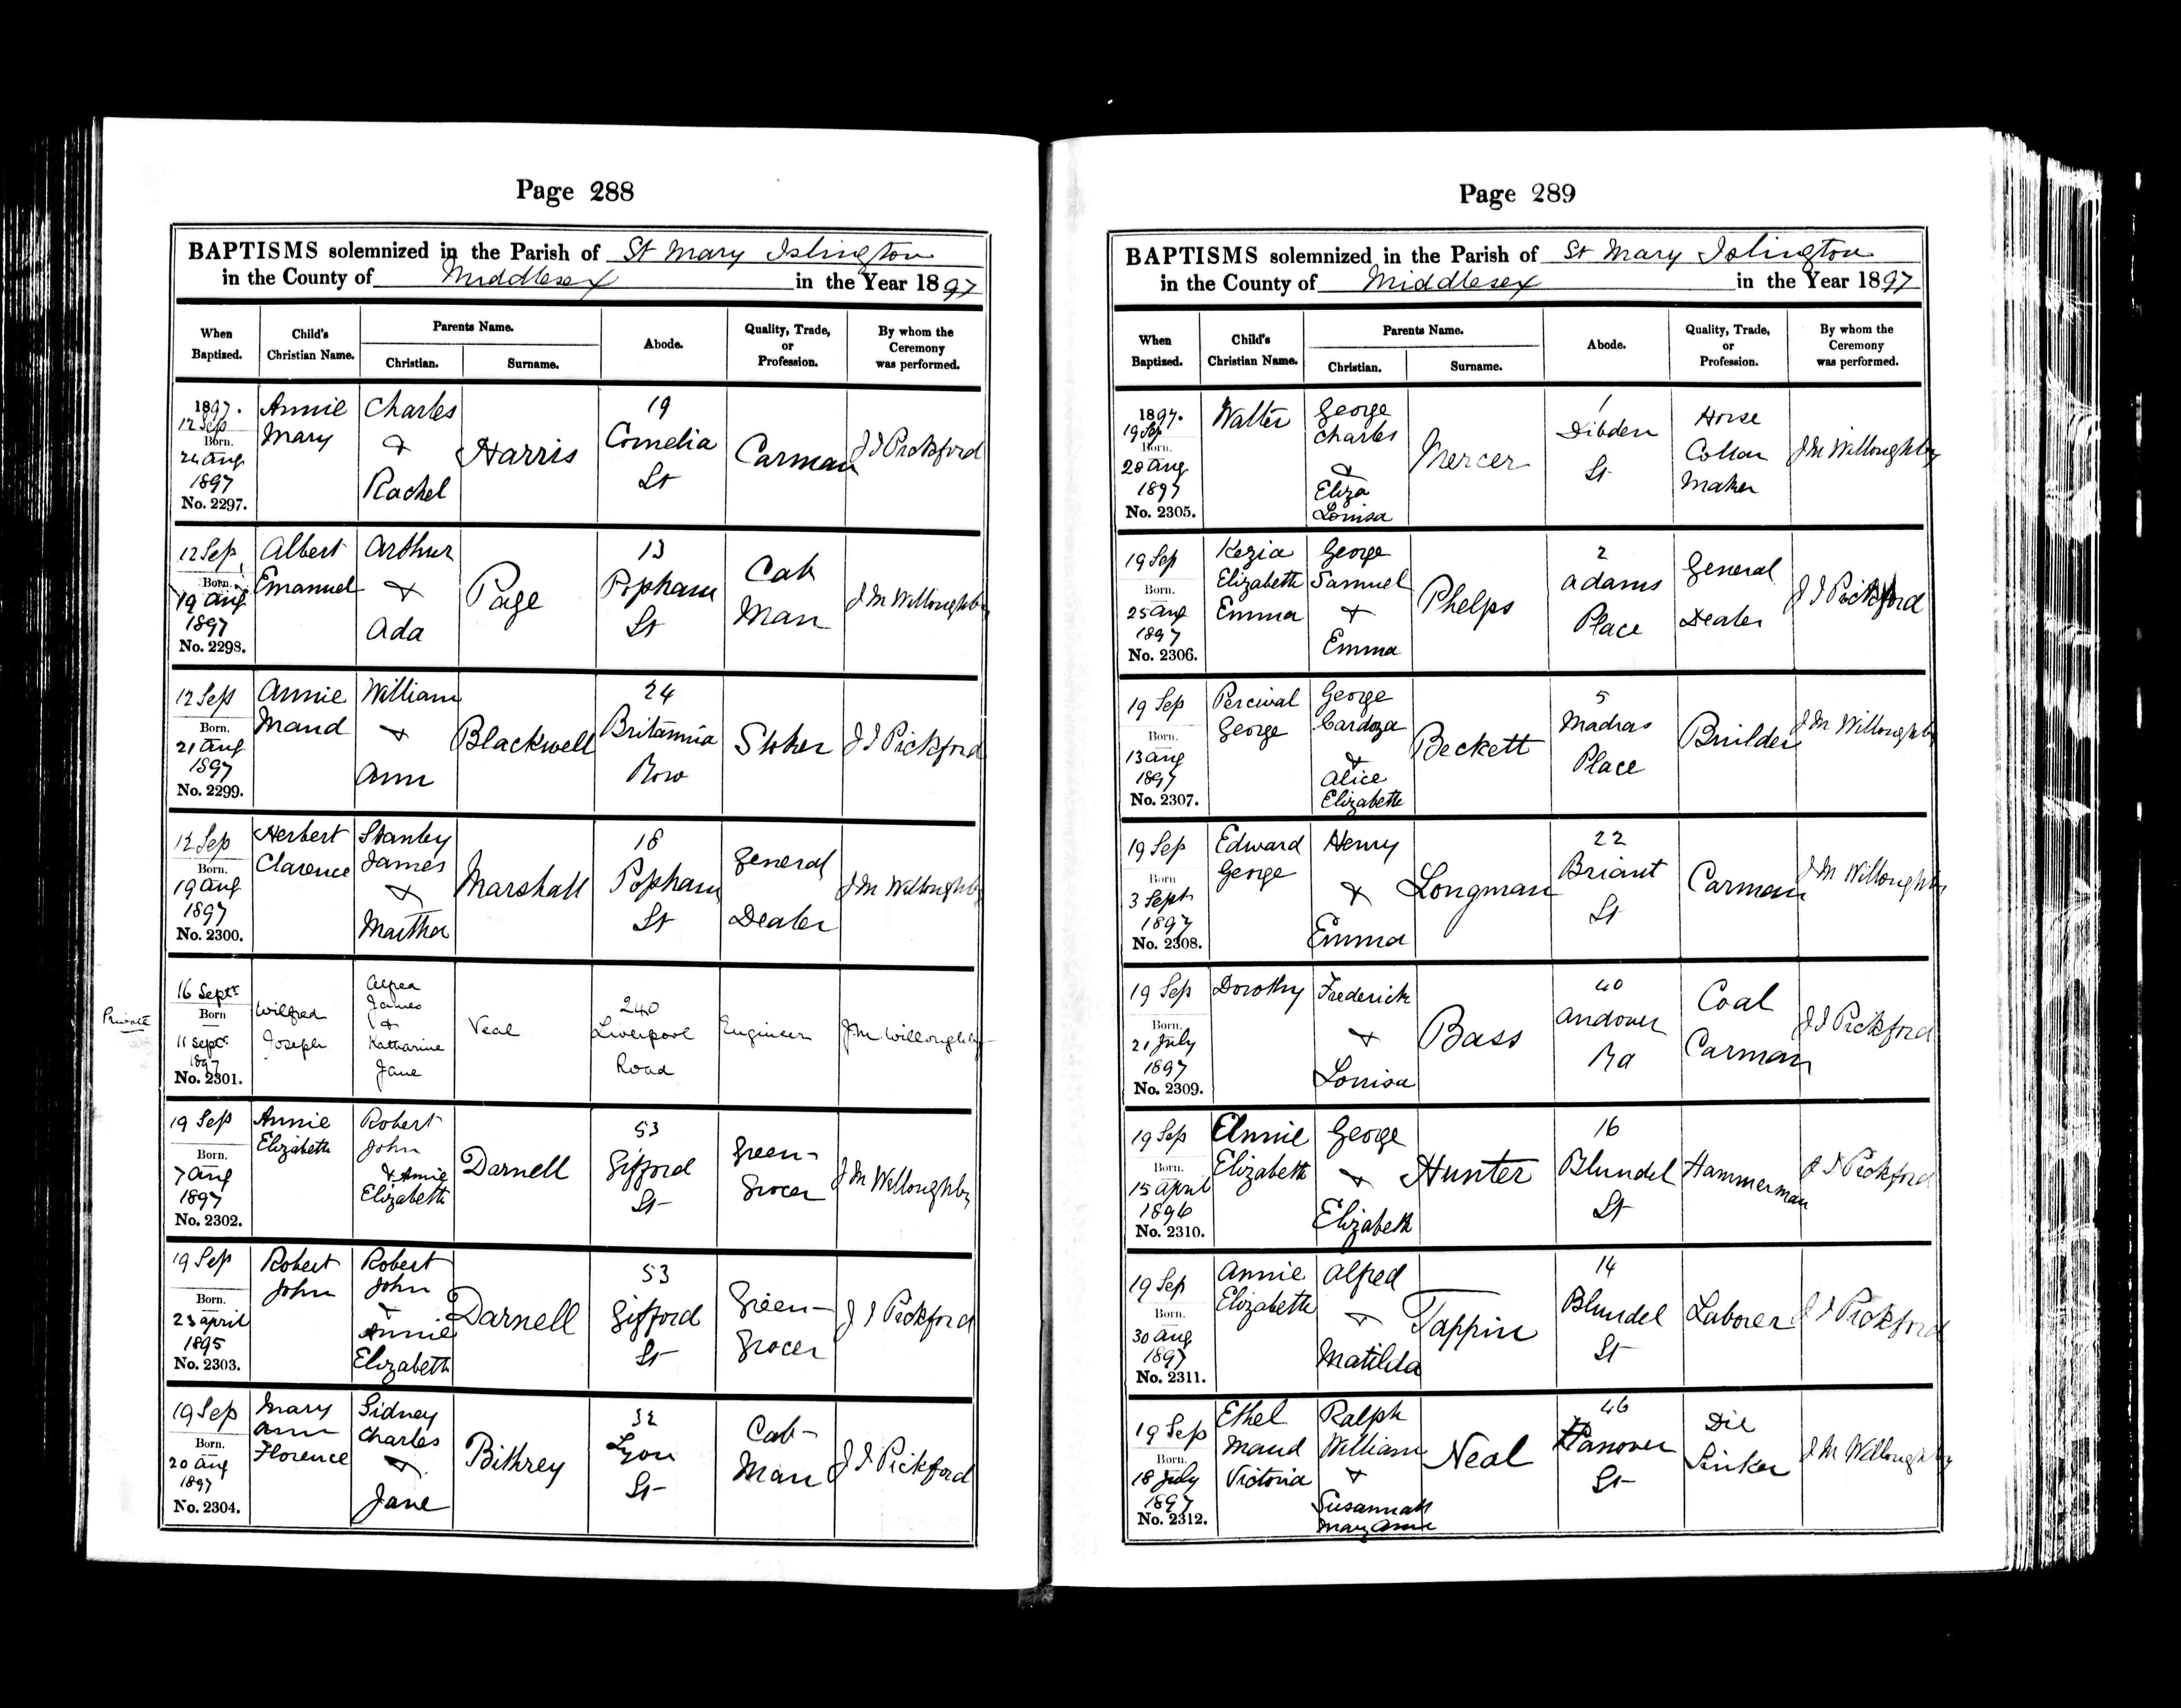 Page 288
BAPTISMS solemnized in the Parish of St Mary Islington
in the County of Middlesex in the Year 1897
When Baptized. Child's Christian Name. Parents Name. Christian. Surname. Abode. Quality, Trade, or Profession. By whom the Ceremony was performed.
1897. 12 Sep Born. 24 Aug 1897 No. 2297. Annie Mary Charles & Rachel Harris 19 Cornelia St Carman J I Pickford
12 Sep Born. 19 Aug 1897 No. 2298. Albert Emanuel Arthur & Ada Page 13 Popham St Cab Man J M Willoughby
12 Sep Born. 21 Aug 1897 No. 2299. Annie Maud William & Ann Blackwell 24 Britannia Row Stoker J I Pickford
12 Sep Born. 19 Aug 1897 No. 2300. Herbert Clarence Stanley James & Martha Marshall 18 Popham St General Dealer J M Willoughby
Private 16 Septr Born 11 Septr 1897 No. 2301. Wilfred Joseph Alfred James & Katharine Jane Veal 240 Liverpool Road Engineer J M Willoughby
19 Sep Born. 7 Aug 1897 No. 2302. Annie Elizabeth Robert John & Annie Elizabeth Darnell 53 Gifford St Green-Grocer J M Willoughby
19 Sep Born. 23 April 1895 No. 2303. Robert John Robert John & Annie Elizabeth Darnell 53 Gifford St Green-Grocer J I Pickford
19 Sep Born. 20 Aug 1897 No. 2304. Mary Ann Florence Sidney Charles & Jane Bithrey 32 Lyon St Cab-Man J I Pickford
Page 289
BAPTISMS solemnized in the Parish of St Mary Islington
in the County of Middlesex in the Year 1897
When Baptized. Child's Christian Name. Parents Name. Christian. Surname. Abode. Quality, Trade, or Profession. By whom the Ceremony was performed.
1897. 19 Sep Born. 20 Aug 1897 No. 2305. Walter George Charles & Eliza Louisa Mercer 1 Dibden St Horse Collar Maker J M Willoughby
19 Sep Born. 25 Aug 1897 No. 2306. Kezia Elizabeth Emma George Samuel & Emma Phelps 2 Adams Place General Dealer J I Pickford
19 Sep Born. 13 Aug 1897 No. 2307. Percival George George Cardoza & Alice Elizabeth Beckett 5 Madras Place Builder J M Willoughby
19 Sep Born 3 Sept 1897 No. 2308. Edward George Henry & Emma Longman 22 Briant St Carman J M Willoughby
19 Sep Born. 21 July 1897 No. 2309. Dorothy Frederick & Louisa Bass 40 Andover Rd Coal Carman J I Pickford
19 Sep Born. 15 April 1896 No. 2310. Elizabeth George & Elizabeth Hunter 16 Blundel St Hammerman J I Pickford
19 Sep Born. 30 Aug 1897 No. 2311. Annie Elizabeth Alfred & Matilda Tappin 14 Blundel St Laborer J I Pickford
19 Sep Born. 18 July 1897 No. 2312. Ethel Maud Victoria Ralph William & Susannah Mary Anne Neal 46 Hanover St Die Sinker J M Willoughby